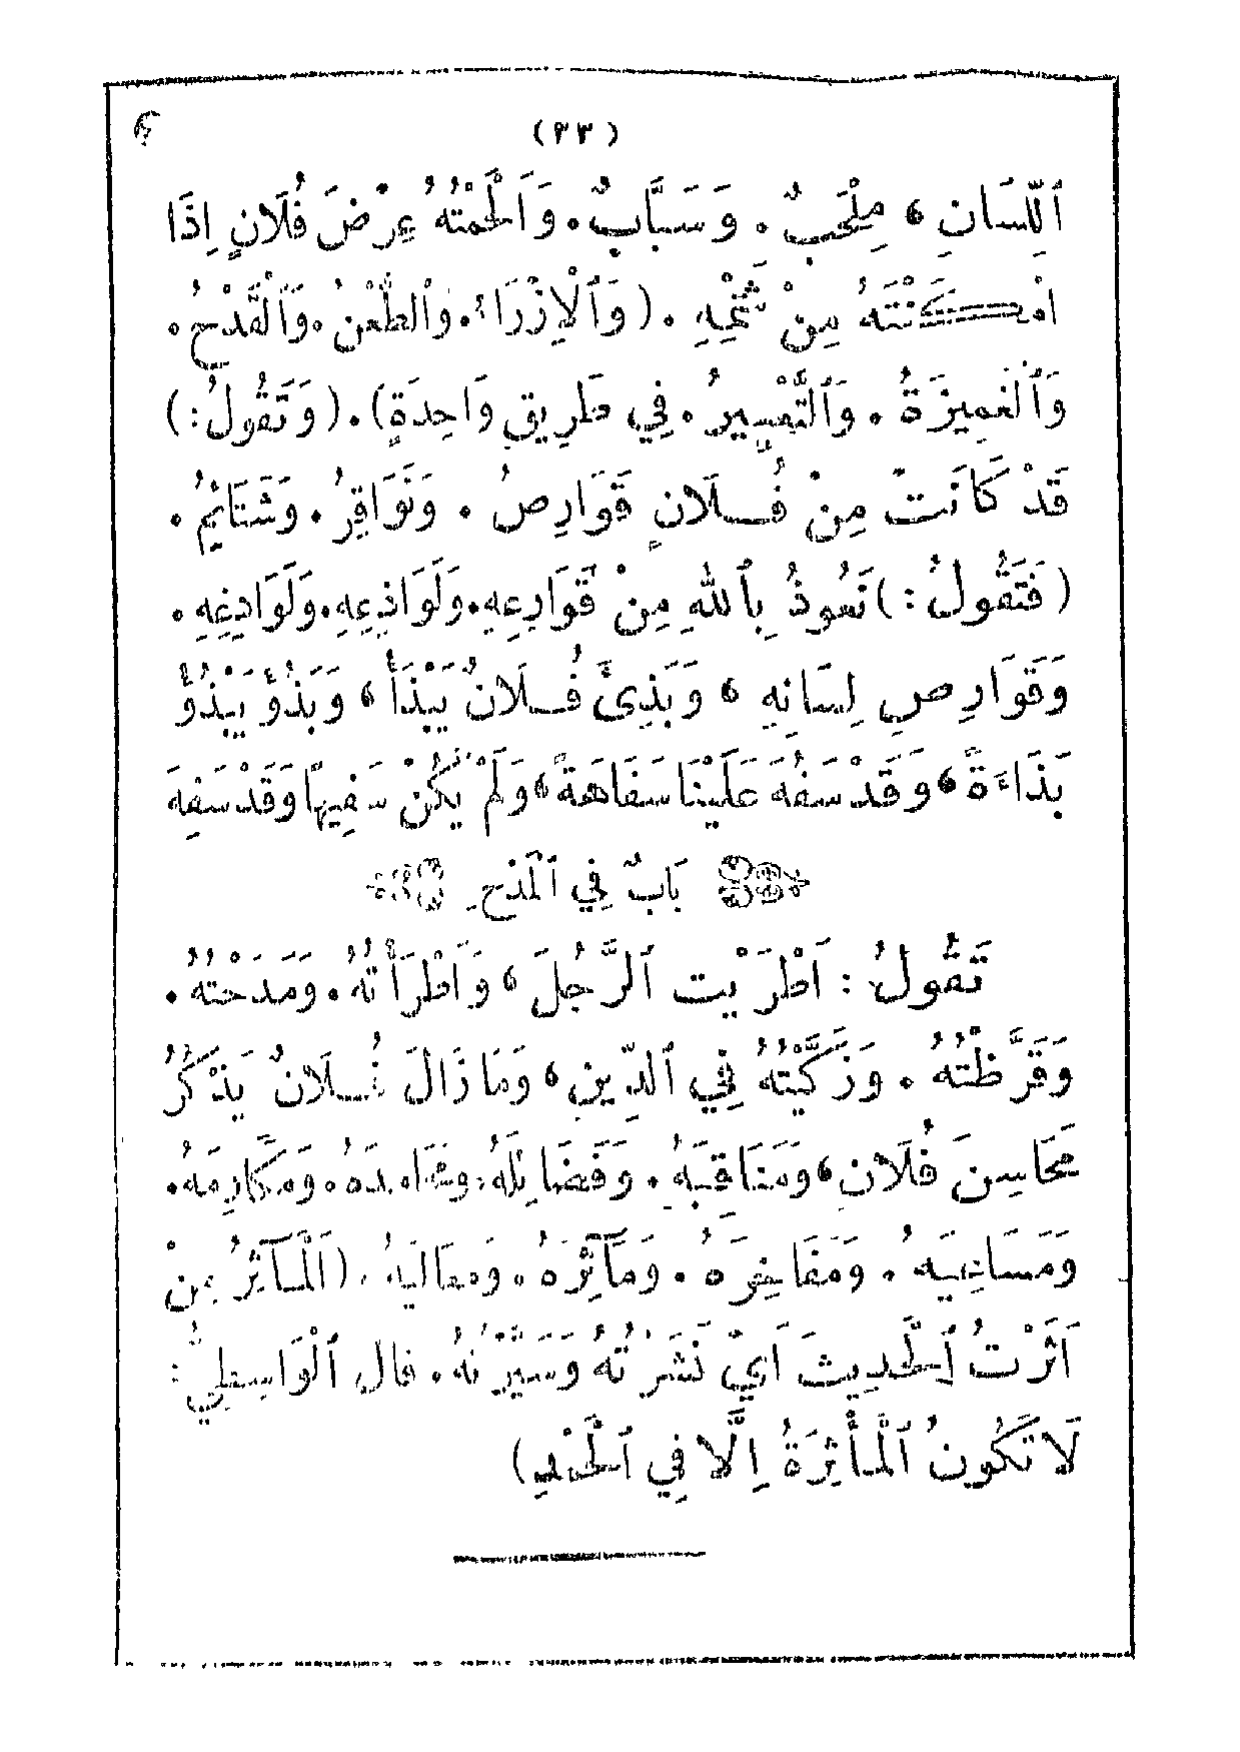 (٢٣)
ٱللِّسَانِ، مِلْحَبٌ. وَسَبَّابٌ. وَأَلْحَمْتُهُ عِرْضَ فُلَانٍ إِذَا
أَمْكَنْتَهُ مِنْ شَتْمِهِ. (وَٱلْإِزْرَاءُ. وَٱلطَّعْنُ. وَٱلْقَدْحُ.
وَٱلْغَمِيزَةُ. وَٱلتَّعْيِيرُ. فِي طَرِيقٍ وَاحِدَةٍ). (وَتَقُولُ:)
قَدْ كَانَتْ مِنْ فُلَانٍ قَوَارِصُ. وَنَوَاقِرُ. وَشَتَائِمُ.
(فَتَقُولُ:) نَعُوذُ بِٱللهِ مِنْ قَوَارِعِهِ. وَلَوَاذِعِهِ. وَلَوَادِغِهِ.
وَقَوَارِصِ لِسَانِهِ، وَبَذِئَ فُلَانٌ يَبْذَأُ، وَبَذُؤَ يَبْذُؤُ
بَذَاءَةً، وَقَدْ سَفُهَ عَلَيْنَا سَفَاهَةً، وَلَمْ يَكُنْ سَفِيهًا وَقَدْ سَفِهَ
بَابٌ فِي ٱلْمَدْحِ
تَقُولُ: أَطْرَيْتُ ٱلرَّجُلَ، وَأَطْرَأْتُهُ. وَمَدَحْتُهُ.
وَقَرَّظْتُهُ. وَزَكَّيْتُهُ فِي ٱلدِّينِ، وَمَا زَالَ فُلَانٌ يَذْكُرُ
مَحَاسِنَ فُلَانٍ، وَمَنَاقِبَهُ. وَفَضَائِلَهُ. وَمَحَامِدَهُ. وَمَكَارِمَهُ.
وَمَسَاعِيَهُ. وَمَفَاخِرَهُ. وَمَآثِرَهُ. وَمَعَالِيَهُ. (أَلْمَآثِرُ مِنْ
أَثَرْتُ ٱلْحَدِيثَ أَيْ نَشَرْتُهُ وَسَيَّرْتُهُ. قَالَ ٱلْوَاسِطِيُّ:
لَا تَكُونُ ٱلْمَأْثَرَةُ إِلَّا فِي ٱلْخَيْرِ)